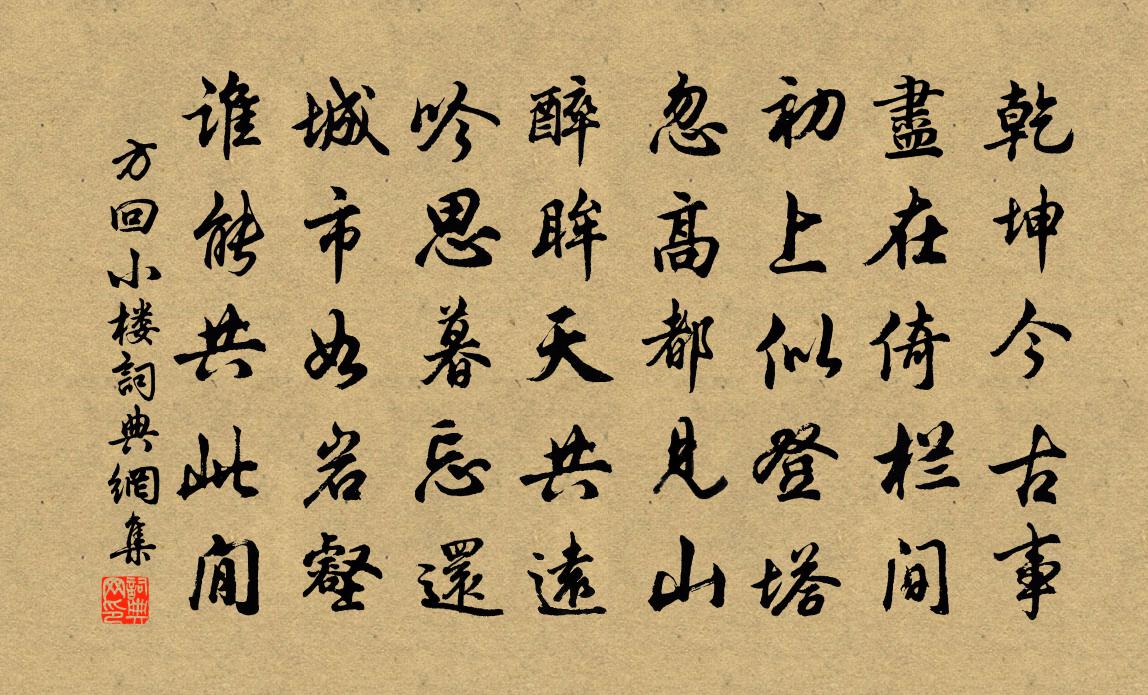 乾坤今古事
盡在倚栏間
初上似登塔
忽高都見山
醉眸天共遠
吟思暮忘還
城市如岩壑
誰能共此閒
方回小楼詞典網集
詞典网印